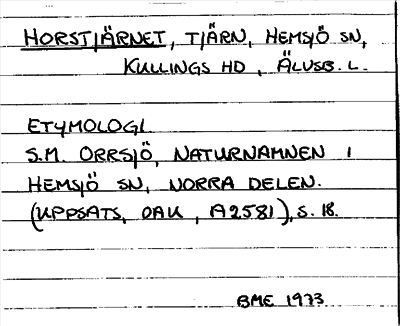 HORSTJÄRNET, TJÄRN, HEMSJÖ SN,
KULLINGS HD, ÄLVSB. L.
ETYMOLOGI
S.M. ORRSJÖ, NATURNAMNEN I
HEMSJÖ SN, NORRA DELEN.
(UPPSATS, OAU, A2581), S. 18.
BME 1973